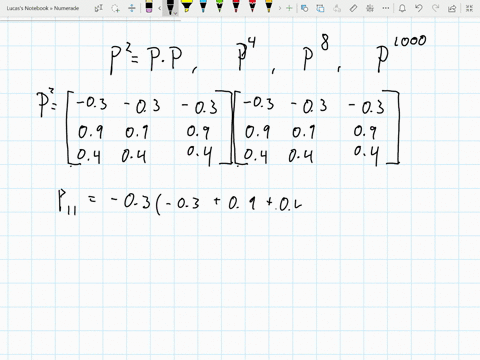 Lucas's Notebook » Numerade
P² = P·P , P⁴ , P⁸ , P¹⁰⁰⁰
P² = [ -0.3 -0.3 -0.3 ] [ -0.3 -0.3 -0.3 ]
0.9 0.9 0.9 0.9 0.9 0.9
0.4 0.4 0.4 0.4 0.4 0.4
P₁₁ = -0.3(-0.3 + 0.9 + 0.